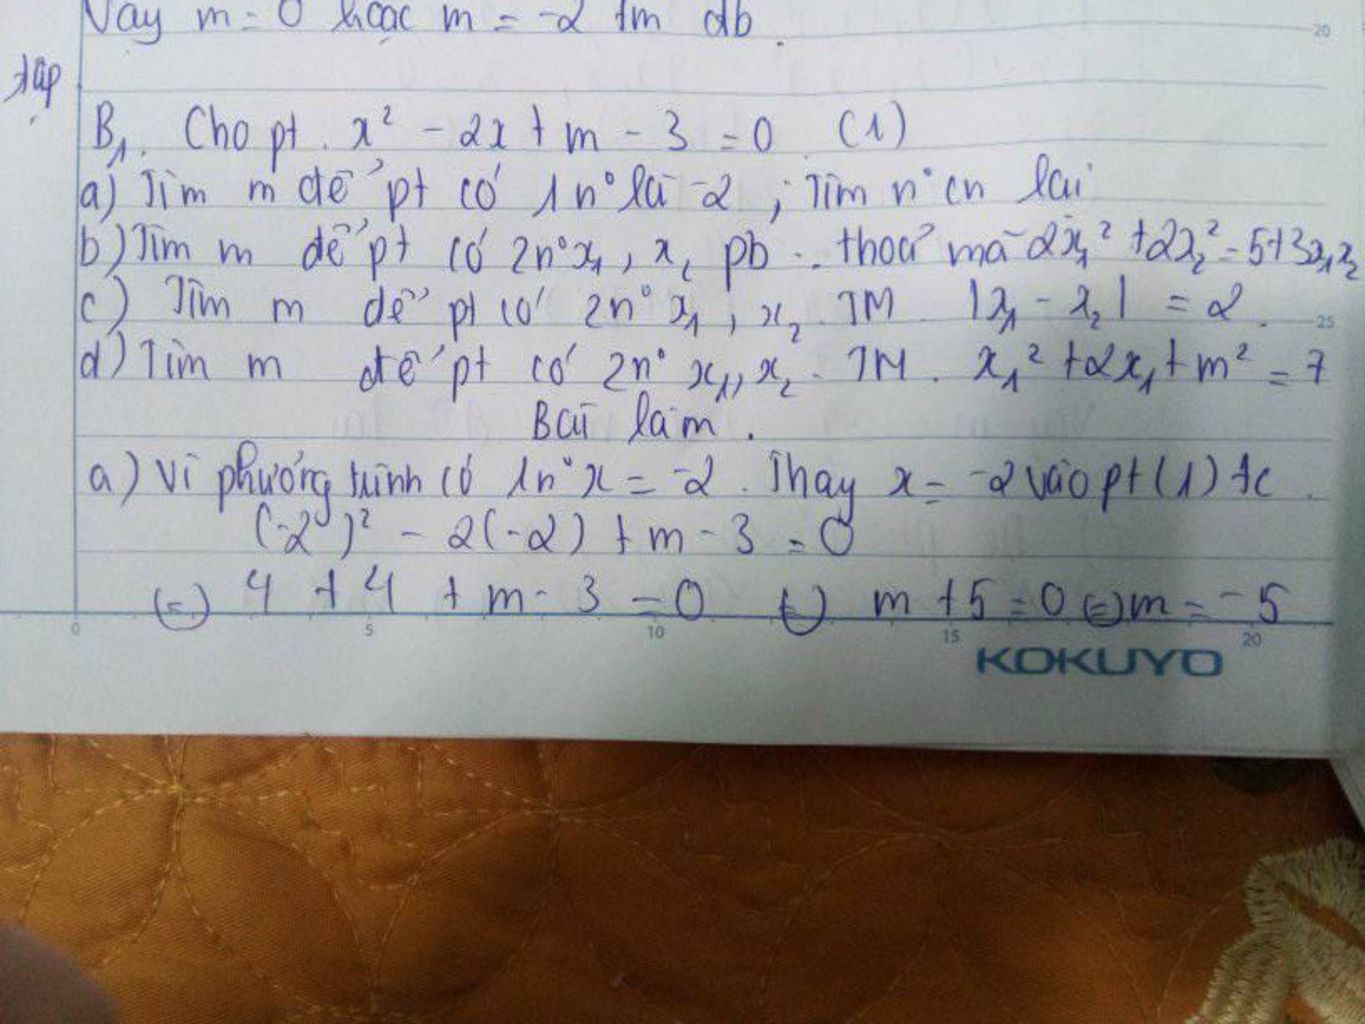 Vậy m = 0 hoặc m = -2 tm đb.
20
tập
B1. Cho pt. x² - 2x + m - 3 = 0 (1)
a) Tìm m để pt có 1n° là -2 ; Tìm n° cn lại
b) Tìm m để pt có 2n° x₁, x₂ pb .. thoả mã 2x₁² + 2x₂² = 5+3x₁x₂
c) Tìm m để pt có 2n° x₁, x₂. TM. |x₁ - x₂| = 2.
25
d) Tìm m để pt có 2n° x₁, x₂. TM. x₁² + 2x₁ + m² = 7
Bài làm.
a) Vì phương trình có 1n° x = -2. Thay x = -2 vào pt (1) tc
(-2)² - 2(-2) + m - 3 = 0
(=) 4 + 4 + m - 3 = 0 (=) m + 5 = 0 (=) m = -5
0 5 10 15 20
KOKUYO